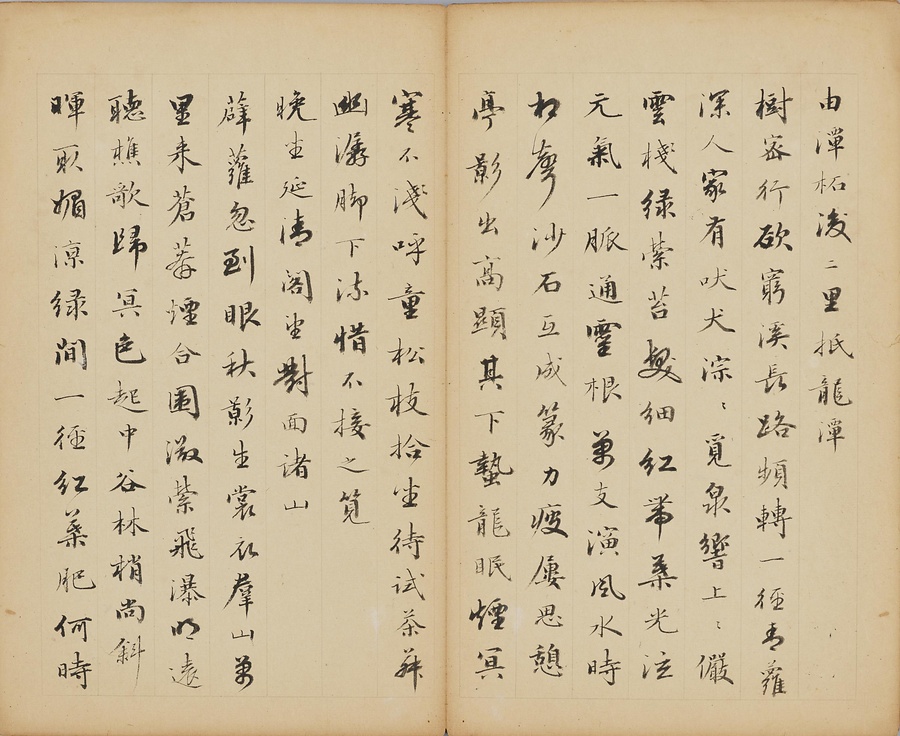 由潭柘後二里抵龍潭
樹密行欲窮溪長路頻轉一徑青蘿
深人家有吠犬淙〻覓泉響上〻儼
雲棧綠縈苔髮細紅帶葉光泫
元氣一脈通靈根萬支演風水時
相奪沙石互成篆力疲屢思憩
亭影出高顯其下蟄龍眠煙冥
寒不淺呼童松枝拾坐待試茶荈
幽潺腳下流惜不接之筧
晚坐延清閣坐對面諸山
薜蘿忽到眼秋影生裳衣群山萬
里来蒼莽煙合圍縈飛瀑明遠
聽樵歌歸冥色起中谷林梢尚斜
暉取媚涼綠間一徑紅葉肥何時